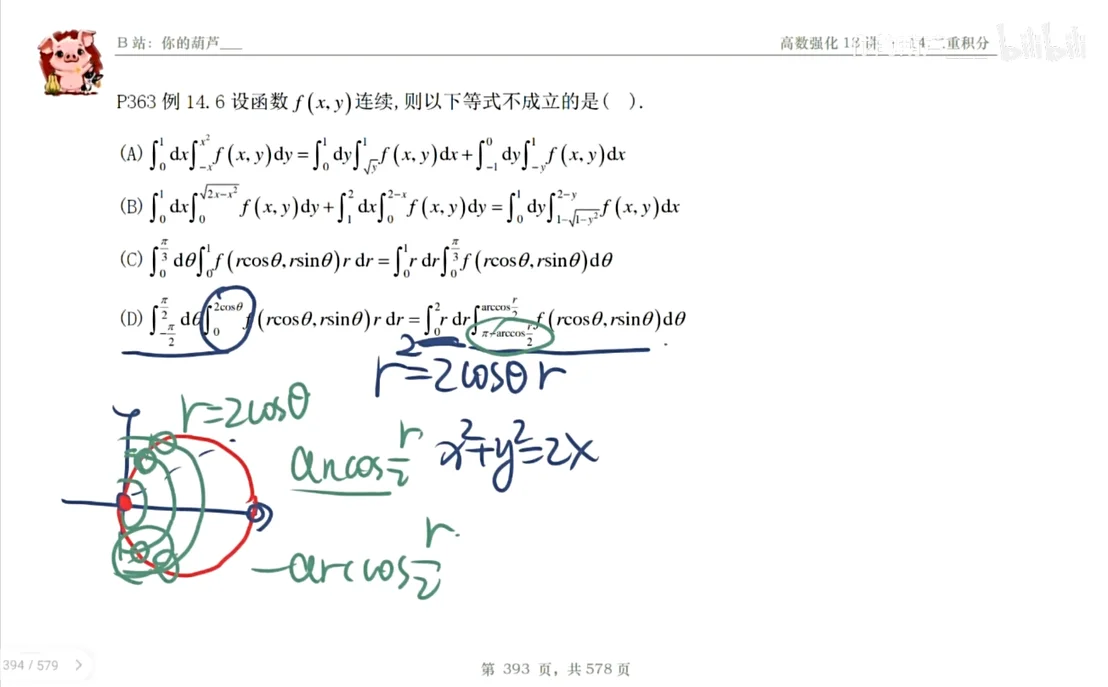 B 站：你的葫芦___
bilibili
P363 例 14.6 设函数 f(x, y) 连续，则以下等式不成立的是（ ）.
(A) ∫₀¹ dx ∫₋ₓ^{x²} f(x, y) dy = ∫₀¹ dy ∫_{√y}^{1} f(x, y) dx + ∫₋₁⁰ dy ∫_{-y}^{1} f(x, y) dx
(B) ∫₀¹ dx ∫₀^{√(2x-x²)} f(x, y) dy + ∫₁² dx ∫₀^{2-x} f(x, y) dy = ∫₀¹ dy ∫_{1-√(1-y²)}^{2-y} f(x, y) dx
(C) ∫₀^{π/3} dθ ∫₀¹ f(rcosθ, rsinθ) r dr = ∫₀¹ r dr ∫₀^{π/3} f(rcosθ, rsinθ) dθ
(D) ∫_{-π/2}^{π/2} dθ ∫₀^{2cosθ} f(rcosθ, rsinθ) r dr = ∫₀² r dr ∫_{π-arccos r/2}^{arccos r/2} f(rcosθ, rsinθ) dθ
r²=2cosθ r
r=2cosθ
arccos r/2
x²+y²=2x
-arccos r/2
394 / 579 >
第 393 页，共 578 页